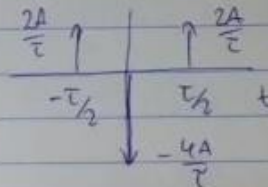 2A/τ 2A/τ
-τ/2 τ/2 t
-4A/τ